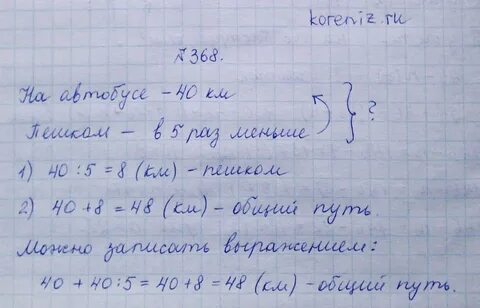 koreniz.ru
№368.
На автобусе – 40 км
Пешком – в 5 раз меньше } ?
1) 40 : 5 = 8 (км) – пешком
2) 40 + 8 = 48 (км) – общий путь.
Можно записать выражением:
40 + 40 : 5 = 40 + 8 = 48 (км) – общий путь.